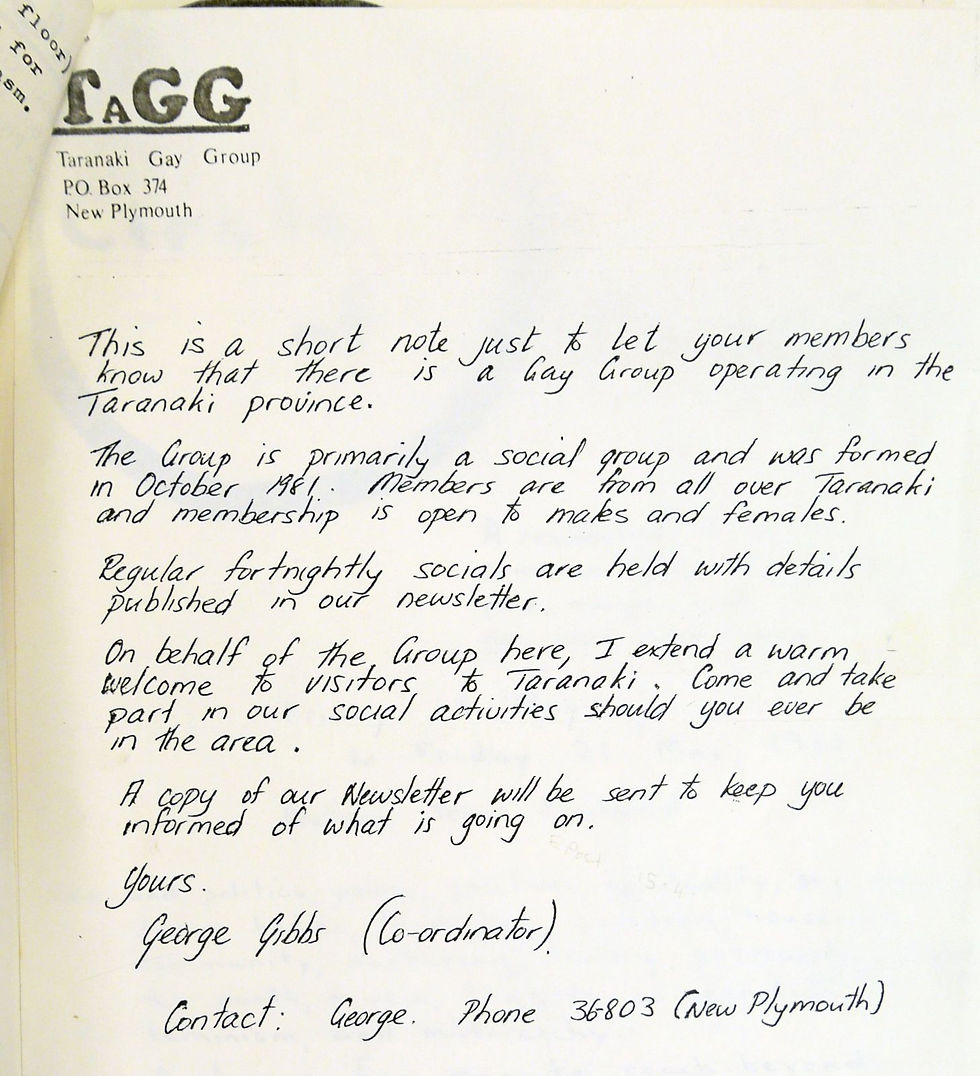 floor)
for
asm.
TAGG
Taranaki Gay Group
P.O. Box 374
New Plymouth
This is a short note just to let your members
know that there is a Gay Group operating in the
Taranaki province.
The Group is primarily a social group and was formed
in October 1981. Members are from all over Taranaki
and membership is open to males and females.
Regular fortnightly socials are held with details
published in our newsletter.
On behalf of the Group here, I extend a warm
welcome to visitors to Taranaki. Come and take
part in our social activities should you ever be
in the area.
A copy of our Newsletter will be sent to keep you
informed of what is going on.
Yours.
George Gibbs (Co-ordinator)
Contact: George. Phone 36-803 (New Plymouth)